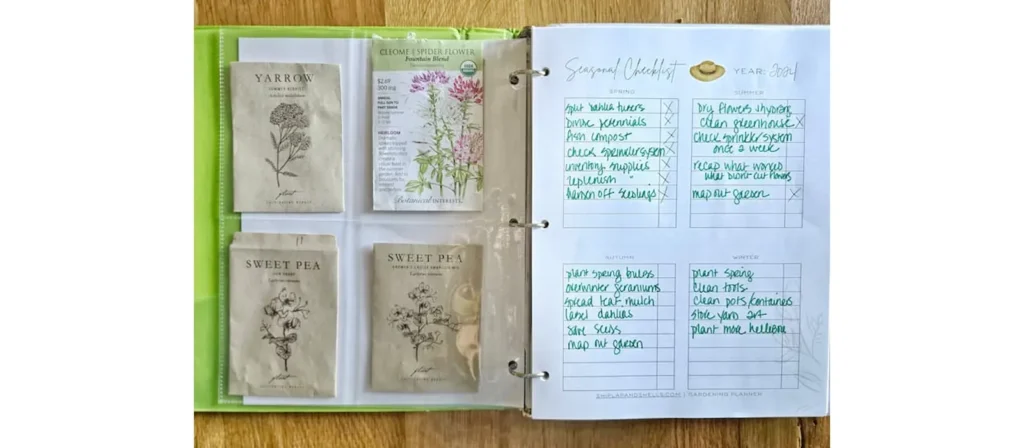 YARROW
SUMMER BERRIES
CLEOME / SPIDER FLOWER
Fountain Blend
$2.69
HEIRLOOM
Botanical INTERESTS
SWEET PEA
SWEET PEA
Lathyrus odoratus
Seasonal Checklist
YEAR: 2024
SPRING
split dahlia tubers
Divide perennials
Add compost
check sprinkler system
inventory supplies
replenish "
Harden off seedlings
SUMMER
Dry flowers + hydrang
clean greenhouse
check sprinkler system
once a week
recap what worked
what didn't cut flowers
map out garden
AUTUMN
plant spring bulbs
overwinter geraniums
spread leaf mulch
label dahlias
save seeds
map out garden
WINTER
plant spring
clean tools
clean pots/containers
store yard art
plant more hellebore
SHIPLAPANDSHELLS.COM | GARDENING PLANNER